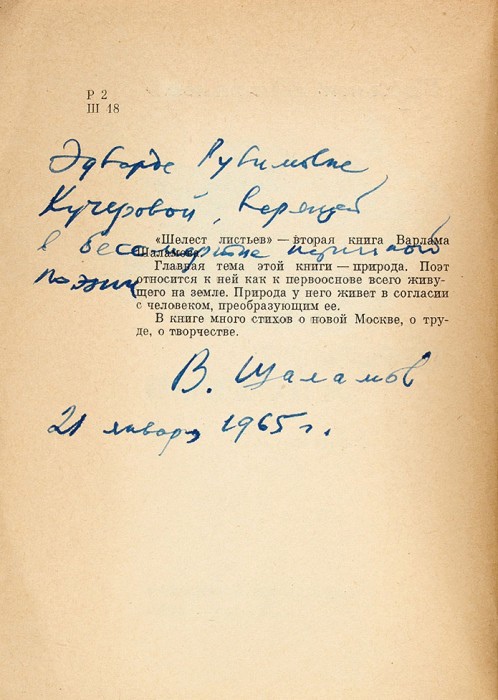 Р 2
Ш 18
Эдварде Рувимовне
Кучеровой, верящей
в бессмертие истинной
поэзии
«Шелест листьев» — вторая книга Варлама
Шаламова.
Главная тема этой книги — природа. Поэт
относится к ней как к первооснове всего живу-
щего на земле. Природа у него живет в согласии
с человеком, преобразующим ее.
В книге много стихов о новой Москве, о тру-
де, о творчестве.
В. Шаламов
21 января 1965 г.